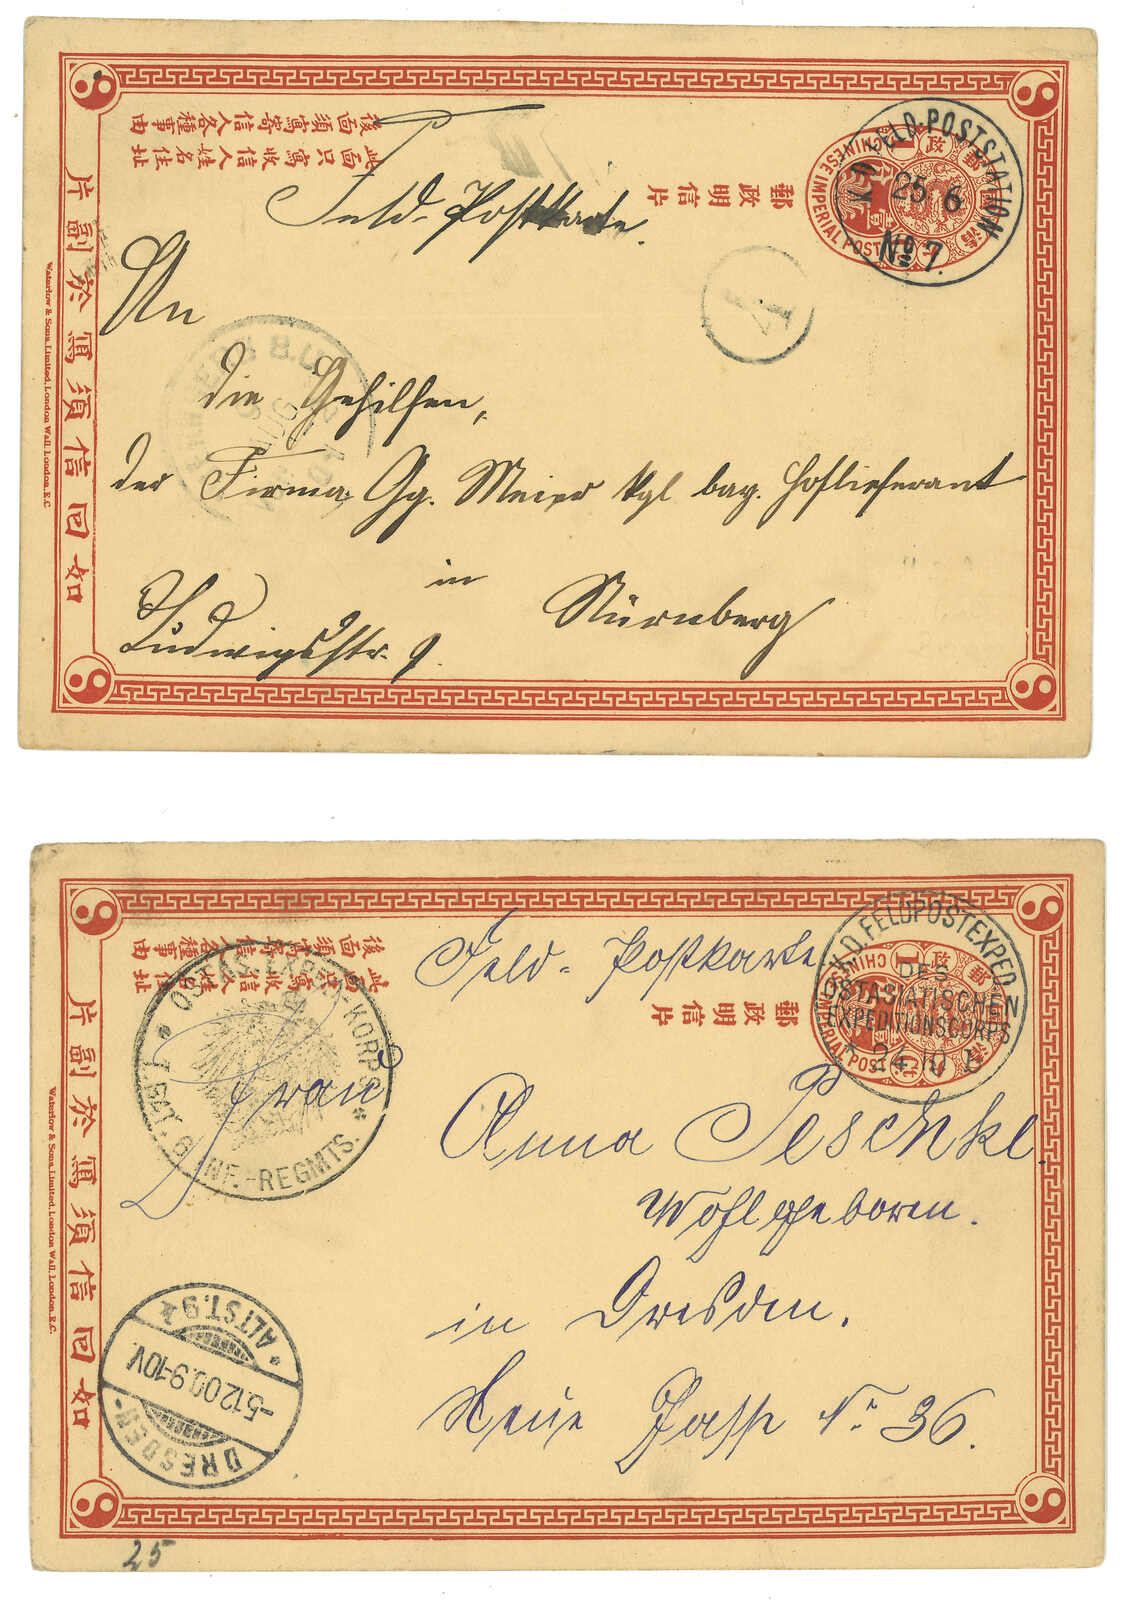 後面須寫寄信人各種事由
此面只寫收信人姓名住址
郵政明信片
CHINESE IMPERIAL POST
1
K. D. FELD-POSTSTATION
25 6
No 7.
Feld-Postkarte.
An
die Gehilfen,
der Firma Gg. Meier kgl bay. Hoflieferant
in Nürnberg
Ludwigsstr. 9.
片副於寫須信回如
Waterlow & Sons Limited, London Wall, London, E.C.
後面須寫寄信人各種事由
此面只寫收信人
郵政明信片
CHINESE IMPERIAL POST
1
K.D. FELDPOSTEXPED.
DES
OSTASIATISCHEN
EXPEDITIONSCORPS
* 24 10
OSTAS. EXPED.-KORPS
* I. BAT. 6. INF.-REGMTS. *
Feld-Postkarte
Frau
Anna Peschke.
Wohlgeboren.
in Dresden.
Neue Gasse No 36.
DRESDEN-
-5.12.00.9-10V.
* ALTST. 9 k *
片副於寫須信回如
Waterlow & Sons Limited, London Wall, London, E.C.
25